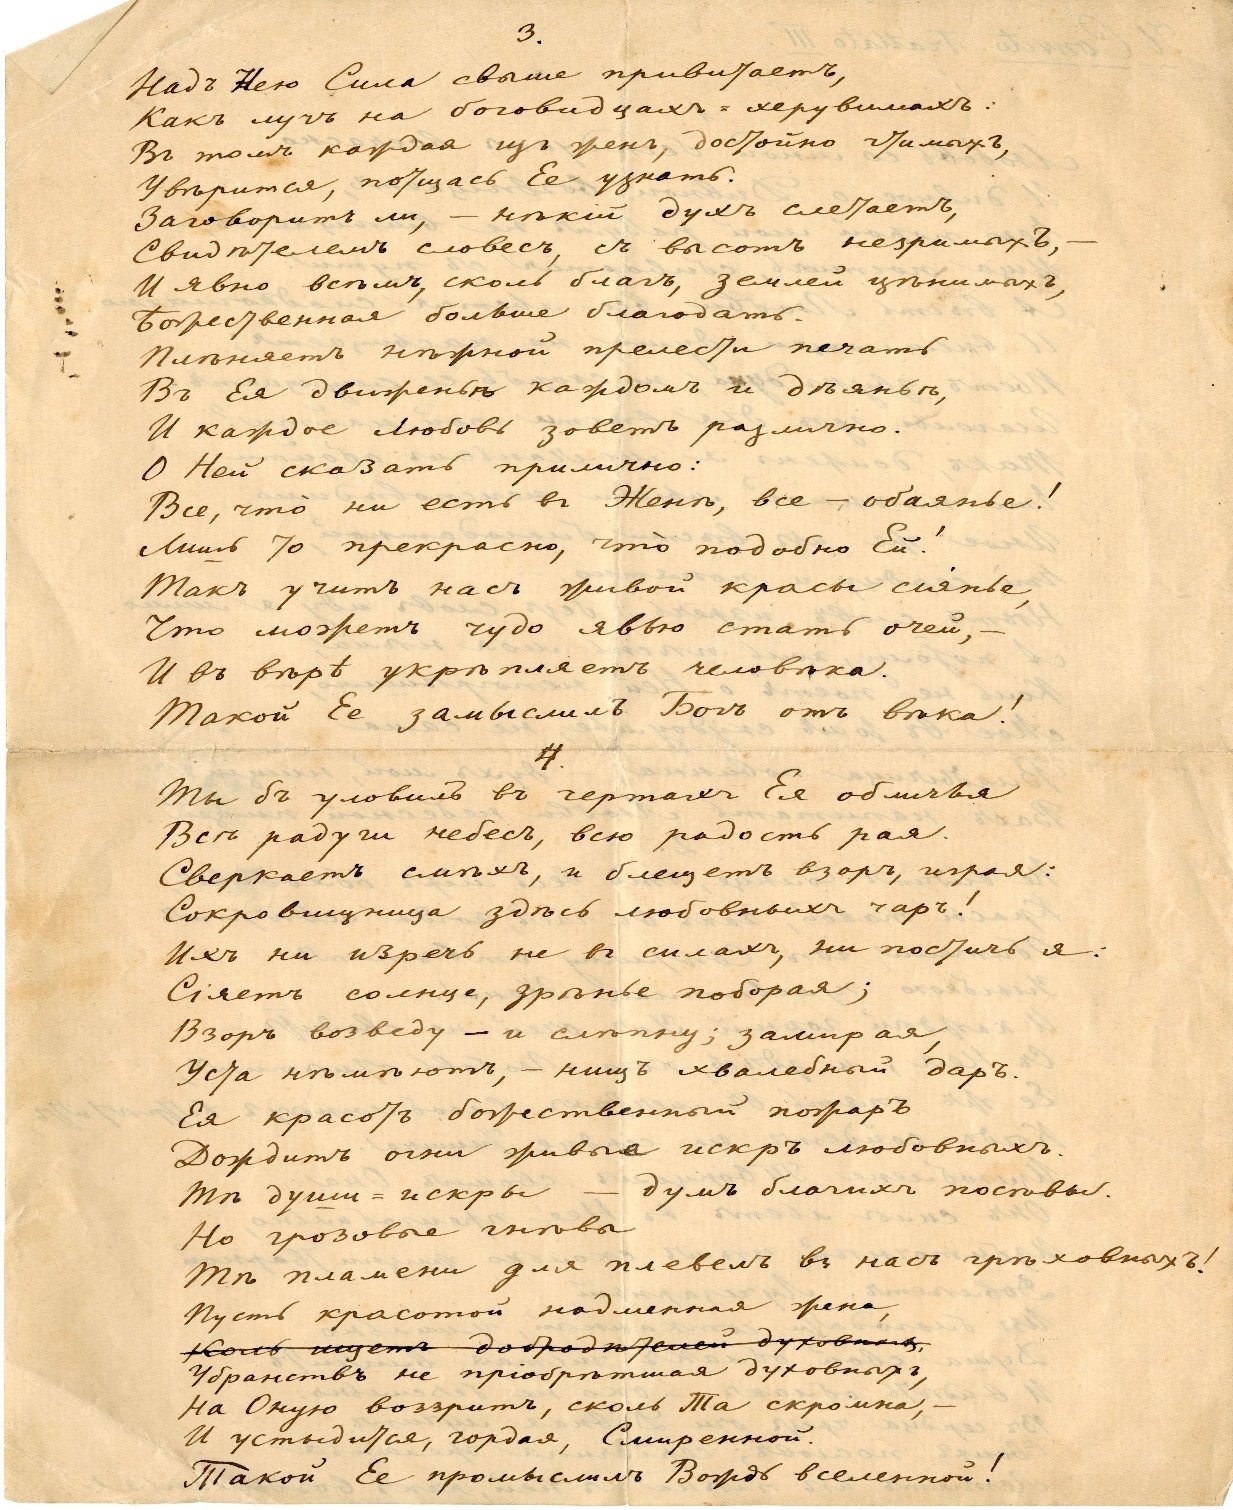 3.
Надъ Нею Сила свыше привитаетъ,
Какъ лучъ на боговидцахъ-херувимахъ:
Въ томъ каждая изъ женъ, достойно чтимыхъ,
Увѣрится, потщась Ее узнать.
Заговоритъ ли, – нѣкій духъ слетаетъ,
Свидѣтелемъ словесъ, съ высотъ незримыхъ, –
И явно всѣмъ, сколь благъ, землей цѣнимыхъ,
Божественная больше благодать.
Плѣняетъ нѣжной прелести печать
Въ Ея движеньи каждомъ и дѣяньѣ,
И каждое Любовь зоветъ различно.
О Ней сказать прилично:
Все, что̀ ни есть въ Женѣ, все – обаянье!
Лишь то прекрасно, что̀ подобно Ей!
Такъ учитъ насъ живой красы сіянье,
Что можетъ чудо явью стать очей, –
И въ вѣрѣ укрѣпляетъ человѣка.
Такой Ее замыслилъ Богъ отъ вѣка!
4.
Ты бъ уловилъ въ чертахъ Ея обличья
Всѣ радуги небесъ, всю радость рая.
Сверкаетъ смѣхъ, и блещетъ взоръ, играя:
Сокровищница здѣсь любовныхъ чаръ!
Ихъ ни изречь не въ силахъ, ни постичь я:
Сіяетъ солнце, зрѣнье поборая;
Взоръ возведу – и слѣпну; замирая,
Уста нѣмѣютъ, – нищъ хвалебный даръ.
Ея красотъ божественный пожаръ
Дождитъ огни живые искръ любовныхъ.
Тѣ души-искры – думъ благихъ посѣвы.
Но грозовые гнѣвы
Тѣ пламени для плевелъ въ насъ грѣховныхъ!
Пусть красотой надменная жена,
Коль ищетъ добродѣтелей духовныхъ,
Убранствъ не пріобрѣтшая духовныхъ,
На Оную воззритъ, сколь Та скромна, –
И устыдится, гордая, Смиренной.
Такой Ее промыслилъ Вождь вселенной!